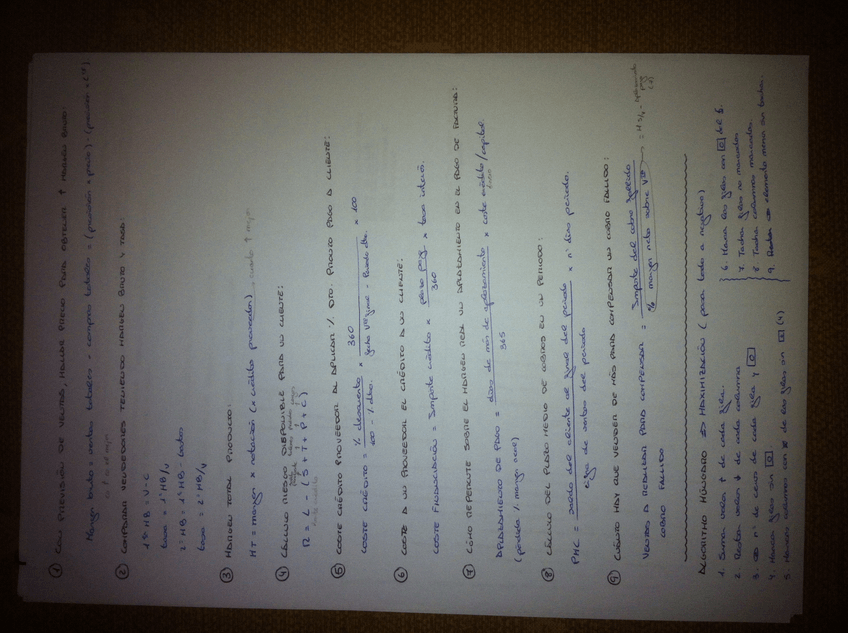 ① CON PREVISIÓN DE VENTAS, HALLAR PRECIO PARA OBTENER ↑ MARGEN BRUTO:
Margen bruto = ventas totales - compras totales = (previsión × precio) - (previsión ×
② COMPARAR VENDEDORES TENIENDO MARGEN BRUTO Y TASA:
1º MB = V - C
tasa = 1º MB/V
2º MB = 1º MB - gastos
tasa = 2º MB/V
③ MARGEN TOTAL PRODUCTO:
MT = margen × rotación (× crédito proveedor) cuanto ↑ mejor
④ CÁLCULO RIESGO DISPONIBLE PARA UN CLIENTE:
R = L - (S + T + P + C)
⑤ COSTE CRÉDITO PROVEEDOR AL APLICAR % DTO. PRONTO PAGO A CLIENTE:
COSTE CRÉDITO = % descuento / 100 - % dto. × 360 / fecha - fecha dto. × 100
⑥ COSTE A UN PROVEEDOR EL CRÉDITO A UN CLIENTE:
COSTE FINANCIACIÓN = Importe crédito × plazo pago / 360 × tasa interés.
⑦ CÓMO REPERCUTE SOBRE EL MARGEN REAL UN APLAZAMIENTO EN EL PAGO DE FACTURA:
APLAZAMIENTO DE PAGO = días de más de aplazamiento / 365 × coste crédito/capital
(pérdida % margen neto)
⑧ CÁLCULO DEL PLAZO MEDIO DE COBROS EN UN PERIODO:
PMC = saldo del cliente al final del periodo / cifra de ventas del periodo × nº días periodo.
⑨ CUÁNTO HAY QUE VENDER DE MÁS PARA COMPENSAR UN COBRO FALLIDO:
VENTAS A REALIZAR PARA COMPENSAR = Importe del cobro fallido / % margen neto sobre
COBRO FALLIDO
ALGORITMO HÚNGARO ⇒ MAXIMIZACIÓN (pasar todo a negativo)
1. Sumar valor ↑ de cada fila.
2. Restar valor ↓ de cada columna
3. nº de ceros de cada fila y 0
4. Marcar filas sin 0.
5. Marcar columnas con de las filas sin (4)
6. Marcar las filas con 0 del 5.
7. Tachar filas no marcadas
8. Tachar columnas marcadas.
9. Restar elemento menor sin tachar.